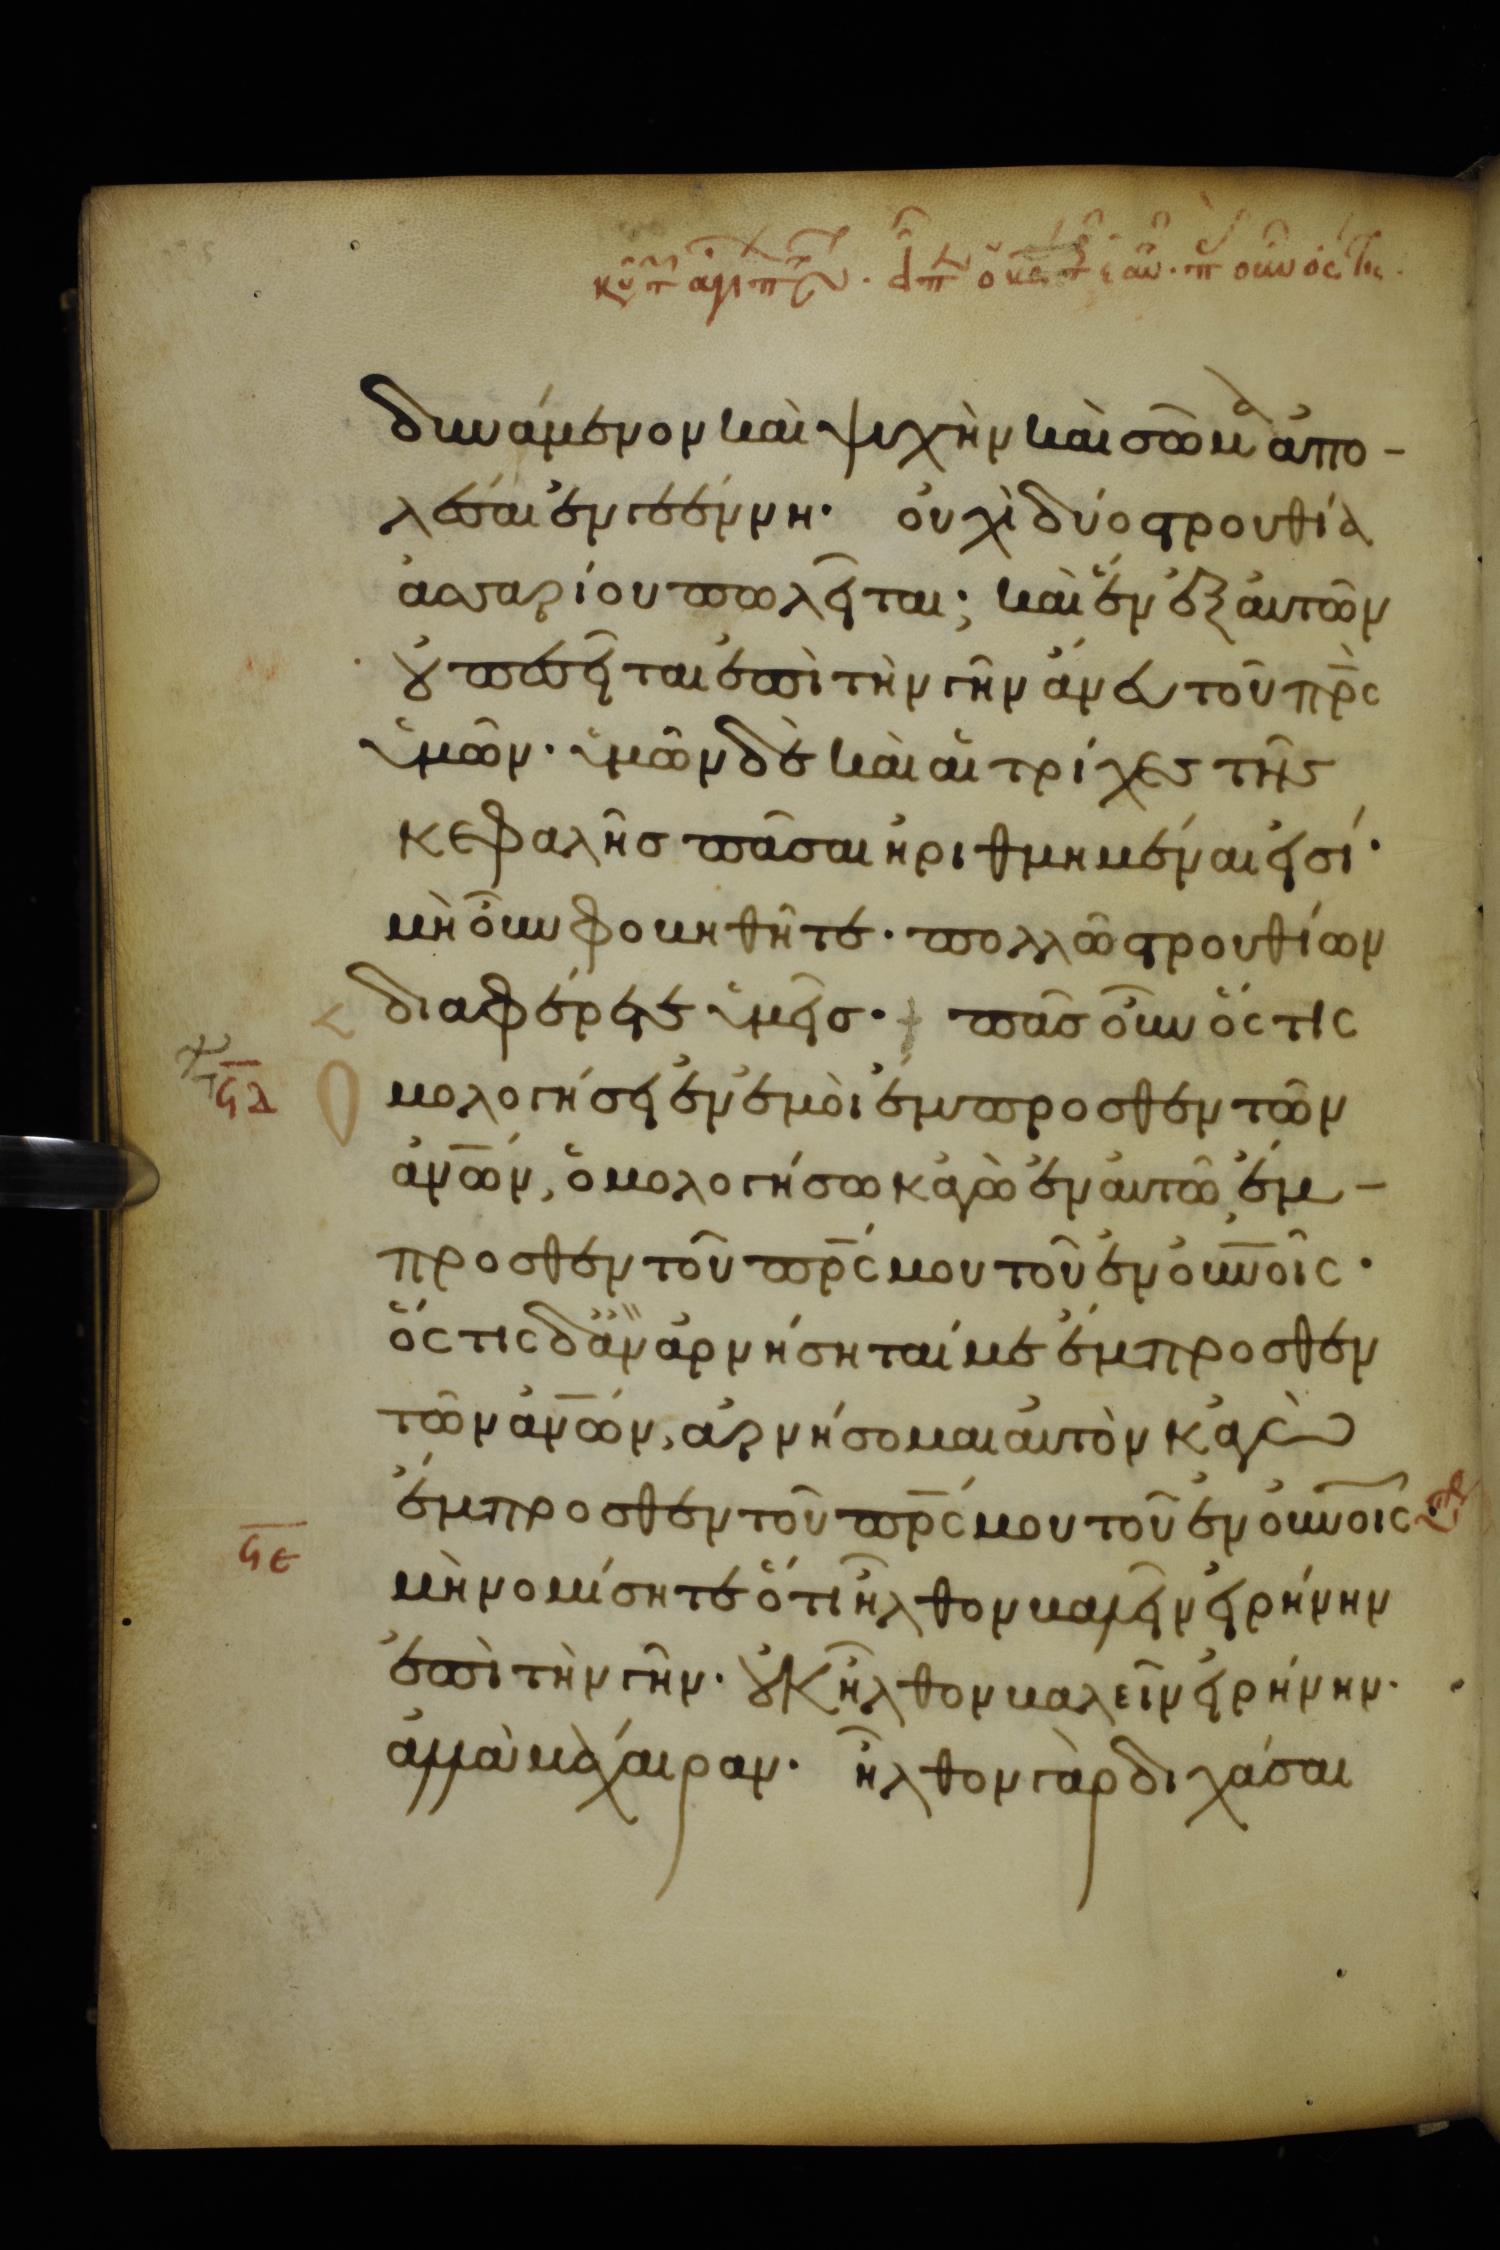 δυνάμενον καὶ ψυχὴν καὶ σῶμα ἀπο-
λέσαι ἐν γεέννη· οὐχὶ δύο στρουθία
ἀσσαρίου πωλεῖται; καὶ ἓν ἐξ αὐτῶν
οὐ πεσεῖται ἐπὶ τὴν γῆν ἄνευ τοῦ πρ̅ς
ὑμῶν· ὑμῶν δὲ καὶ αἱ τρίχες τῆς
κεφαλῆς πᾶσαι ἠριθμημέναι εἰσί·
μὴ οὖν φοβηθῆτε· πολλῶ στρουθίων
διαφέρετε ὑμεῖς· πᾶς οὖν ὅςτις
ϟδ
ὁμολογήσει ἐν ἐμοὶ ἔμπροσθεν τῶν
ἀν̅ων, ὁμολογήσω καγὼ ἐν αὐτῶ ἔμ-
προσθεν τοῦ πρ̅ς μου τοῦ ἐν οὐν̅οῖς·
ὅςτις δ ἂν ἀρνήσηταί με ἔμπροσθεν
τῶν ἀν̅ων, ἀρνήσομαι αὐτὸν καγὼ
ἔμπροσθεν τοῦ πρ̅ς μου τοῦ ἐν οὐν̅οις·
ϟε
μὴ νομίσητε ὅτι ἦλθον βαλεῖν εἰρήνην
ἐπὶ τὴν γῆν· οὐκ ἦλθον βαλεῖν εἰρήνην·
ἀλλὰ μάχαιραν· ἦλθον γὰρ διχάσαι